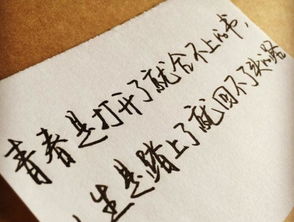 青春是打开了就合不上的书，
人生是踏上了就回不了头的路